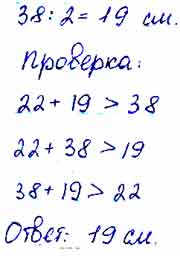 38 : 2 = 19 см.
Проверка:
22 + 19 > 38
22 + 38 > 19
38 + 19 > 22
Ответ: 19 см.